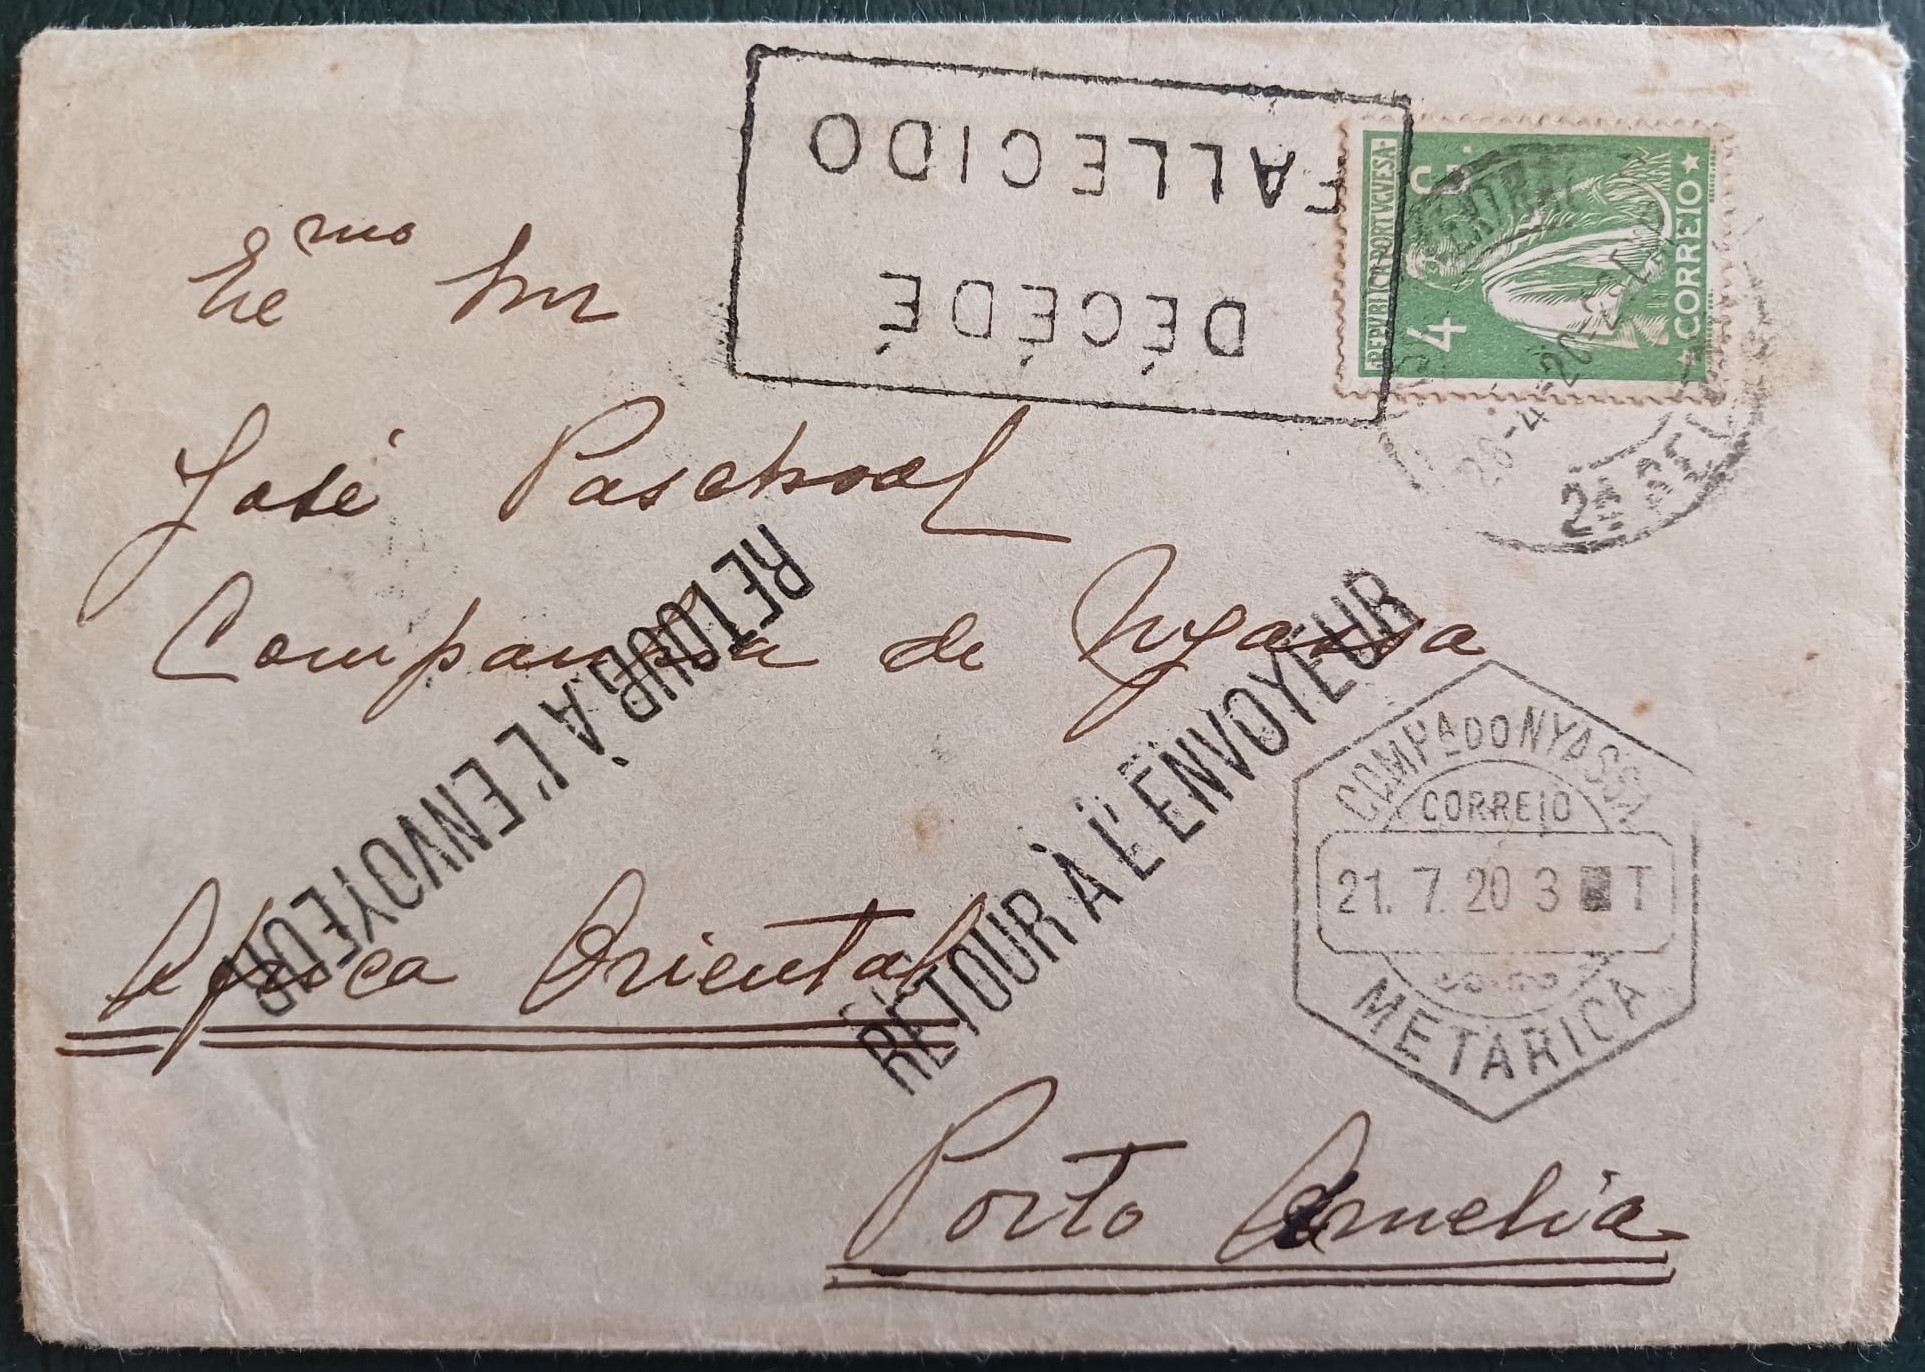 DÉCÉDÉ
FALLECIDO
REPVBLICA PORTVGVESA
4 C.
CORREIO
CENTRAL
20-4-20
2ª SE
Exᵐᵒ Snr
José Paschoal
Companhia de Nyassa
RETOUR À L'ENVOYEUR
RETOUR À L'ENVOYEUR
COMPª DO NYASSA
CORREIO
21. 7. 20 3 T
METARICA
Africa Oriental
Porto Amelia